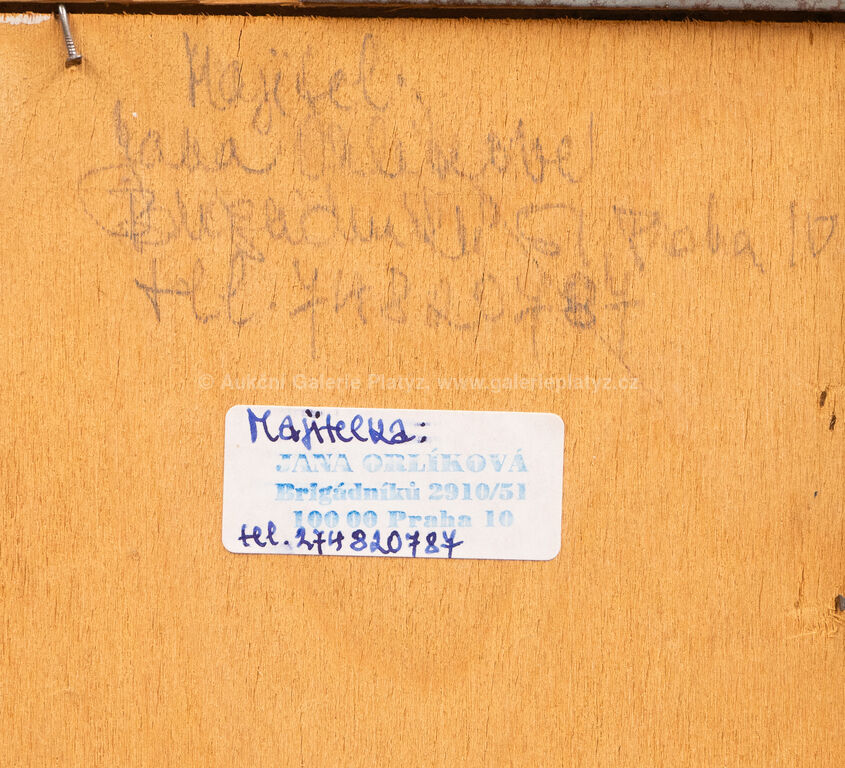 Majitel:
Jana Orlíková
Brigádníků 51 Praha 10
tel. 74820787
© Aukční Galerie Platýz, www.galerieplatyz.cz
Majitelka:
JANA ORLÍKOVÁ
Brigádníků 2910/51
100 00 Praha 10
tel. 274820787